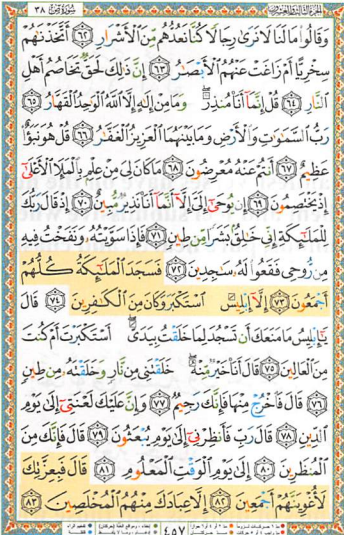 الجزء الثالث والعشرون سورة ص ٣٨
وَقَالُوا مَا لَنَا لَا نَرَىٰ رِجَالًا كُنَّا نَعُدُّهُم مِّنَ الْأَشْرَارِ ٦٢ أَتَّخَذْنَاهُمْ
سِخْرِيًّا أَمْ زَاغَتْ عَنْهُمُ الْأَبْصَارُ ٦٣ إِنَّ ذَٰلِكَ لَحَقٌّ تَخَاصُمُ أَهْلِ
النَّارِ ٦٤ قُلْ إِنَّمَا أَنَا مُنذِرٌ وَمَا مِنْ إِلَٰهٍ إِلَّا اللَّهُ الْوَاحِدُ الْقَهَّارُ ٦٥
رَبُّ السَّمَاوَاتِ وَالْأَرْضِ وَمَا بَيْنَهُمَا الْعَزِيزُ الْغَفَّارُ ٦٦ قُلْ هُوَ نَبَأٌ
عَظِيمٌ ٦٧ أَنتُمْ عَنْهُ مُعْرِضُونَ ٦٨ مَا كَانَ لِيَ مِنْ عِلْمٍ بِالْمَلَإِ الْأَعْلَىٰ
إِذْ يَخْتَصِمُونَ ٦٩ إِن يُوحَىٰ إِلَيَّ إِلَّا أَنَّمَا أَنَا نَذِيرٌ مُّبِينٌ ٧٠ إِذْ قَالَ رَبُّكَ
لِلْمَلَائِكَةِ إِنِّي خَالِقٌ بَشَرًا مِّن طِينٍ ٧١ فَإِذَا سَوَّيْتُهُ وَنَفَخْتُ فِيهِ
مِن رُّوحِي فَقَعُوا لَهُ سَاجِدِينَ ٧٢ فَسَجَدَ الْمَلَائِكَةُ كُلُّهُمْ
أَجْمَعُونَ ٧٣ إِلَّا إِبْلِيسَ اسْتَكْبَرَ وَكَانَ مِنَ الْكَافِرِينَ ٧٤ قَالَ
يَا إِبْلِيسُ مَا مَنَعَكَ أَن تَسْجُدَ لِمَا خَلَقْتُ بِيَدَيَّ أَسْتَكْبَرْتَ أَمْ كُنتَ
مِنَ الْعَالِينَ ٧٥ قَالَ أَنَا خَيْرٌ مِّنْهُ خَلَقْتَنِي مِن نَّارٍ وَخَلَقْتَهُ مِن طِينٍ
٧٦ قَالَ فَاخْرُجْ مِنْهَا فَإِنَّكَ رَجِيمٌ ٧٧ وَإِنَّ عَلَيْكَ لَعْنَتِي إِلَىٰ يَوْمِ
الدِّينِ ٧٨ قَالَ رَبِّ فَأَنظِرْنِي إِلَىٰ يَوْمِ يُبْعَثُونَ ٧٩ قَالَ فَإِنَّكَ مِنَ
الْمُنظَرِينَ ٨٠ إِلَىٰ يَوْمِ الْوَقْتِ الْمَعْلُومِ ٨١ قَالَ فَبِعِزَّتِكَ
لَأُغْوِيَنَّهُمْ أَجْمَعِينَ ٨٢ إِلَّا عِبَادَكَ مِنْهُمُ الْمُخْلَصِينَ ٨٣
٤٥٧